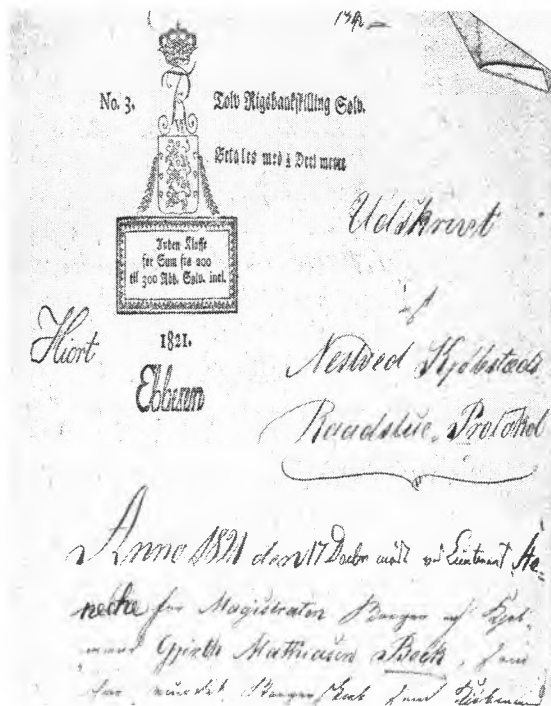 No. 3.
Tolv Rigsbankskilling Sølv.
Betales med ½ Deel mere
Anden Klasse
for Sum fra 200
til 300 Rbd. Sølv. incl.
1821.
Hiort
Ebbesen
Udskrivt
af
Nestved Kjøbstæds
Raadstue-Protokol
Anno 1821 den 17 Decbr mødt Lieutenant He-
necke for Magistraten Borger og Kjøb-
mand Mathiasen Bech, som
Borgerskab som Kjøbmand